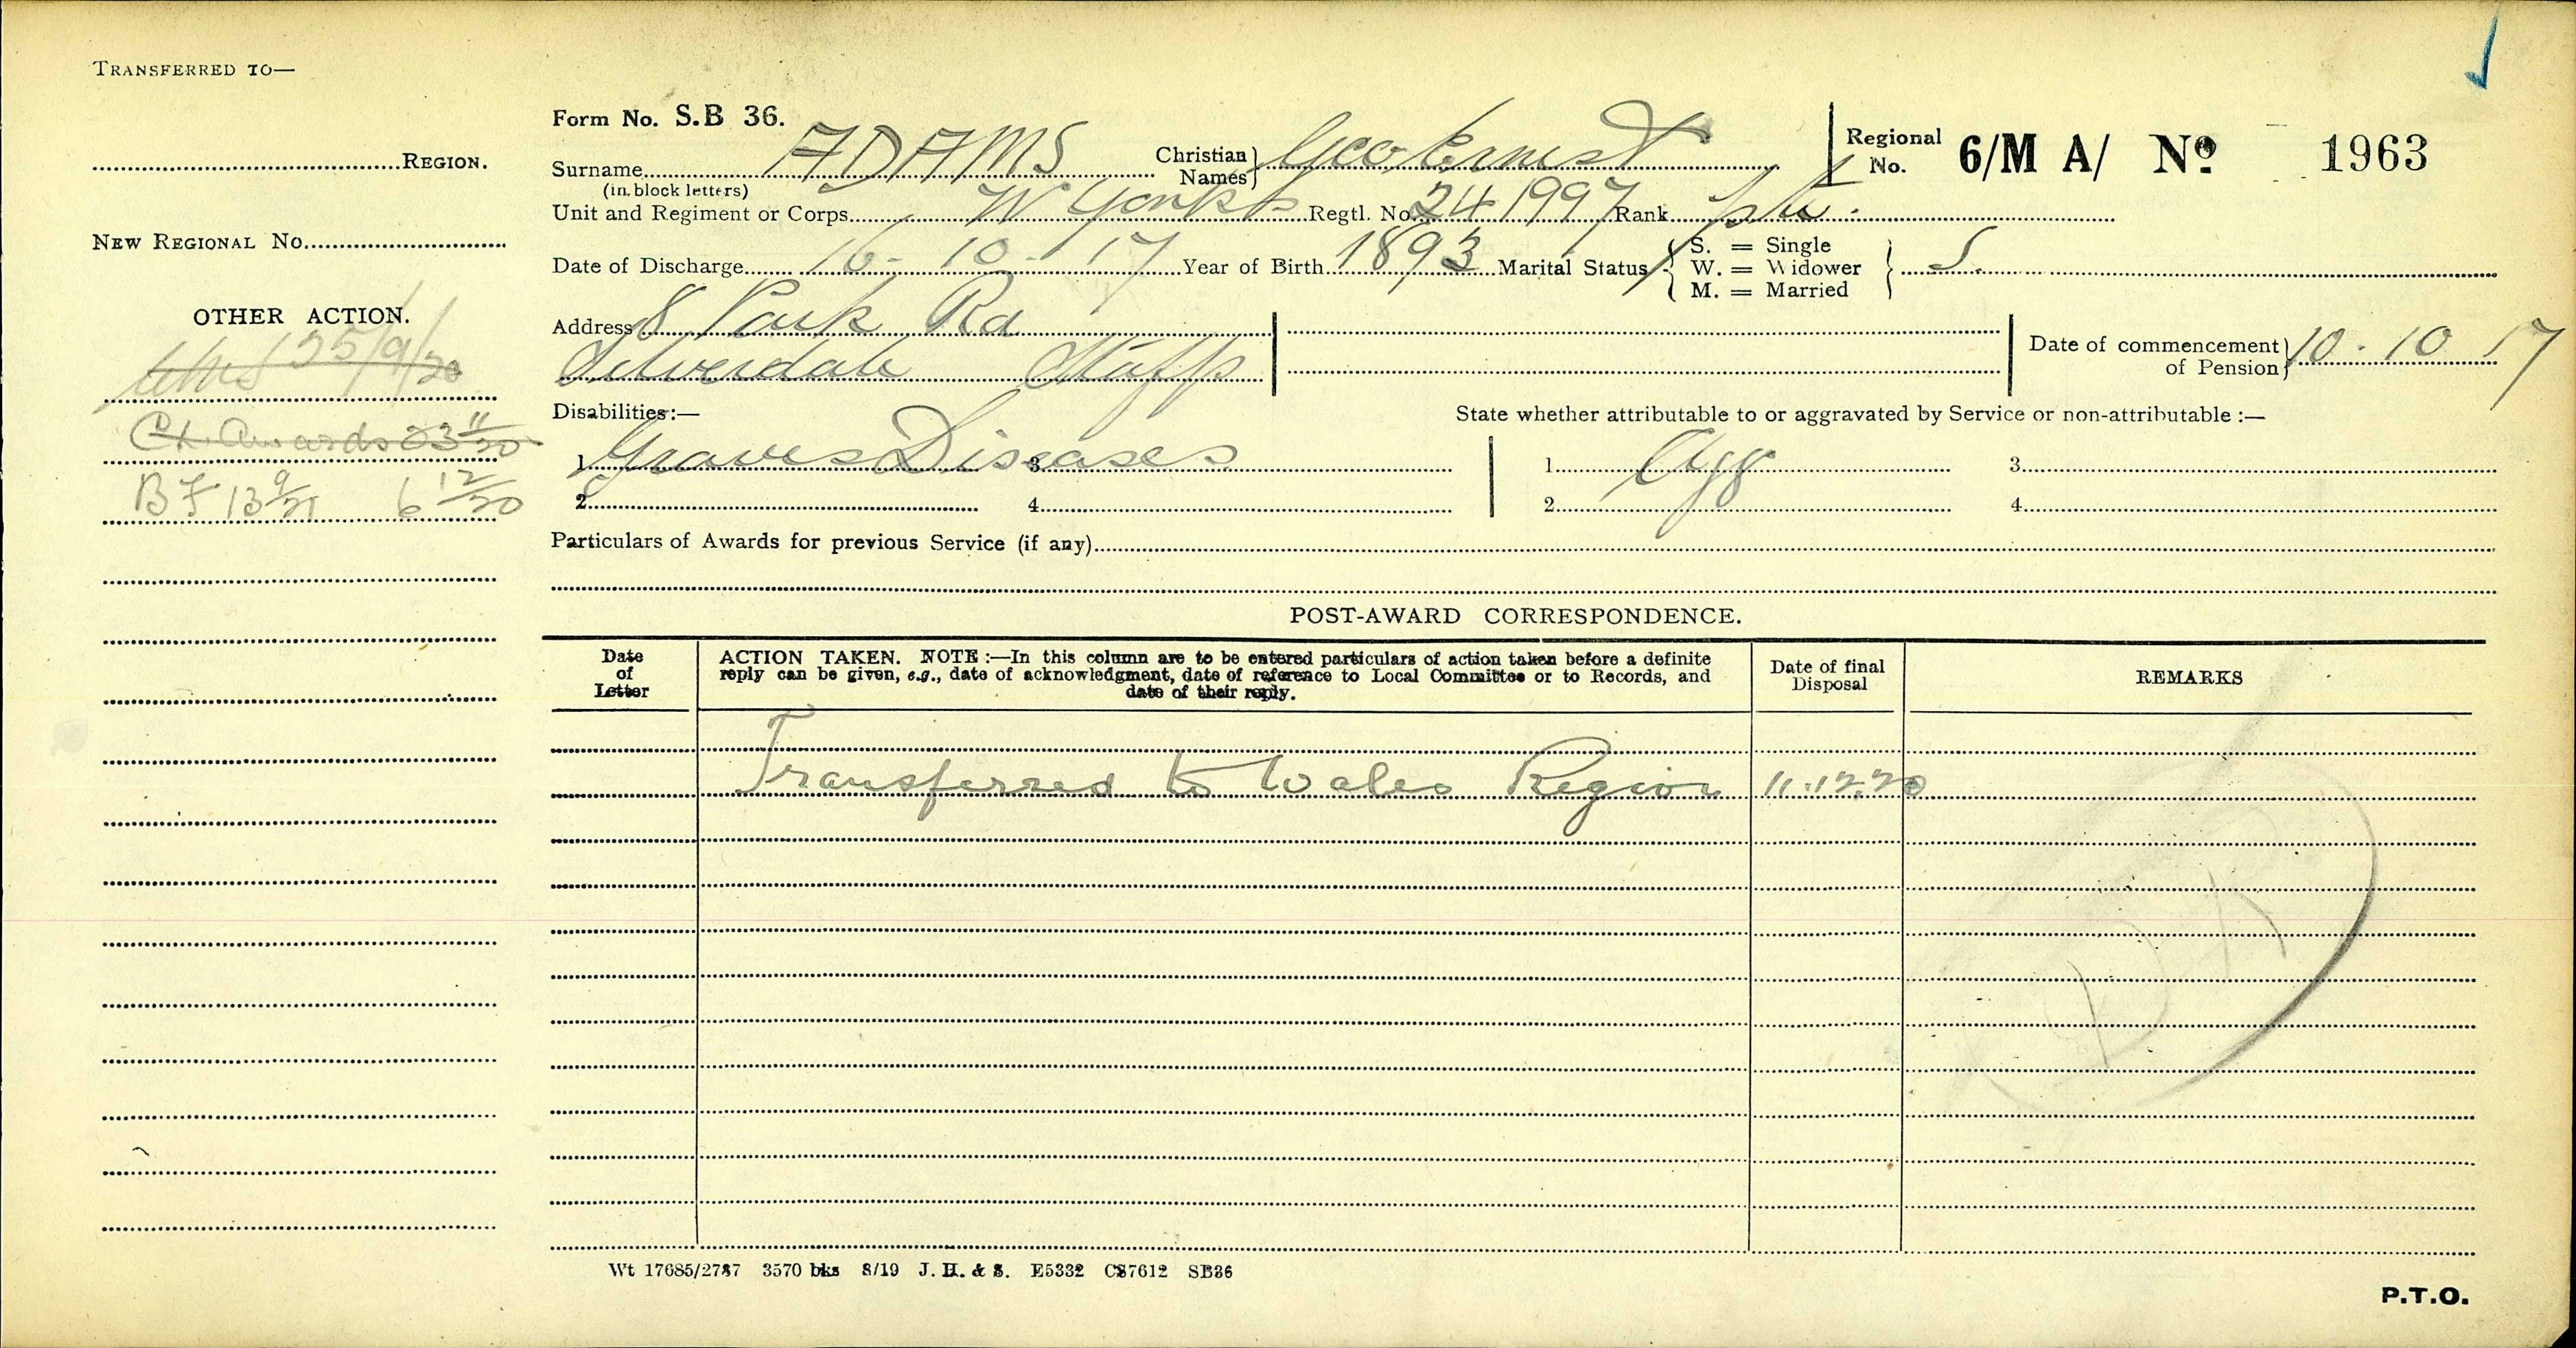 TRANSFERRED TO—
REGION.
NEW REGIONAL No.
OTHER ACTION.
25/9/20
Ct. Awards 23 11/20
BF 13 9/21 6 12/20
Form No. S.B 36.
Surname ADAMS Christian Names Geo Ernest Regional No. 6/M A/ No 1963
(in block letters)
Unit and Regiment or Corps W Yorks Regtl. No. 241997 Rank Pte.
Date of Discharge 16-10-17 Year of Birth 1893 Marital Status S. = Single W. = Widower M. = Married S.
Address 8 Park Rd
Silverdale Staffs
Date of commencement of Pension 10.10 17
Disabilities:— State whether attributable to or aggravated by Service or non-attributable :—
1. Graves Diseases 3. 1. Agg 3.
2. 4. 2. 4.
Particulars of Awards for previous Service (if any)
POST-AWARD CORRESPONDENCE.
Date of Letter
ACTION TAKEN. NOTE :—In this column are to be entered particulars of action taken before a definite
reply can be given, e.g., date of acknowledgment, date of reference to Local Committee or to Records, and
date of their reply.
Date of final Disposal
REMARKS
Transferred to Wales Region 11.12.20
Wt 17685/2787 3570 bks 8/19 J. H. & S. E5332 CS7612 SB36
P.T.O.